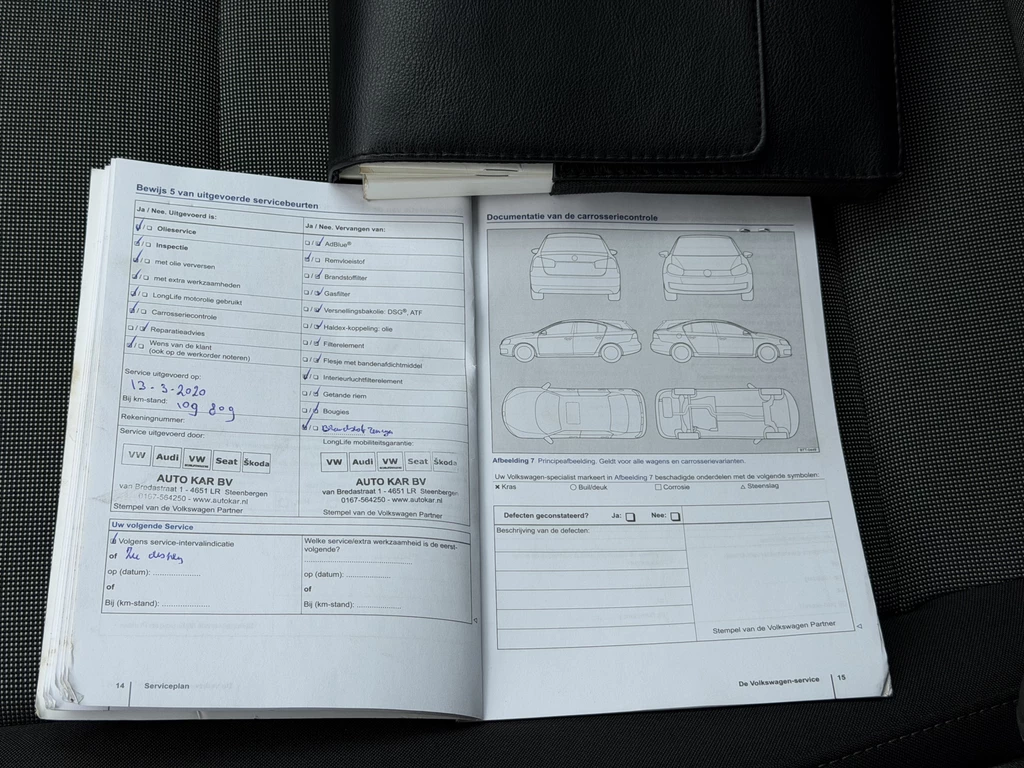 Bewijs 5 van uitgevoerde servicebeurten
Ja / Nee. Uitgevoerd is:
Olieservice
Inspectie
met olie verversen
met extra werkzaamheden
LongLife motorolie gebruikt
Carrosseriecontrole
Reparatieadvies
Wens van de klant
(ook op de werkorder noteren)
Service uitgevoerd op:
13-3-2020
Bij km-stand: 109 809
Rekeningnummer:
Service uitgevoerd door:
VW Audi VW Seat Škoda
AUTO KAR BV
van Bredastraat 1 - 4651 LR Steenbergen
0167-564250 - www.autokar.nl
Stempel van de Volkswagen Partner
Ja / Nee. Vervangen van:
AdBlue®
Remvloeistof
Brandstoffilter
Gasfilter
Versnellingsbakolie: DSG®, ATF
Haldex-koppeling: olie
Filterelement
Flesje met bandenafdichtmiddel
Interieurluchtfilterelement
Getande riem
Bougies
LongLife mobiliteitsgarantie:
VW Audi VW Seat Škoda
AUTO KAR BV
van Bredastraat 1 - 4651 LR Steenbergen
0167-564250 - www.autokar.nl
Stempel van de Volkswagen Partner
Uw volgende Service
Volgens service-intervalindicatie
of
op (datum): ....................
of
Bij (km-stand): ....................
Welke service/extra werkzaamheid is de eerst-
volgende?
op (datum): ....................
of
Bij (km-stand): ....................
14 Serviceplan
Documentatie van de carrosseriecontrole
Afbeelding 7 Principeafbeelding. Geldt voor alle wagens en carrosserievarianten.
Uw Volkswagen-specialist markeert in Afbeelding 7 beschadigde onderdelen met de volgende symbolen:
× Kras ○ Buil/deuk □ Corrosie △ Steenslag
Defecten geconstateerd? Ja: ❑ Nee: ❑
Beschrijving van de defecten:
Stempel van de Volkswagen Partner
De Volkswagen-service 15